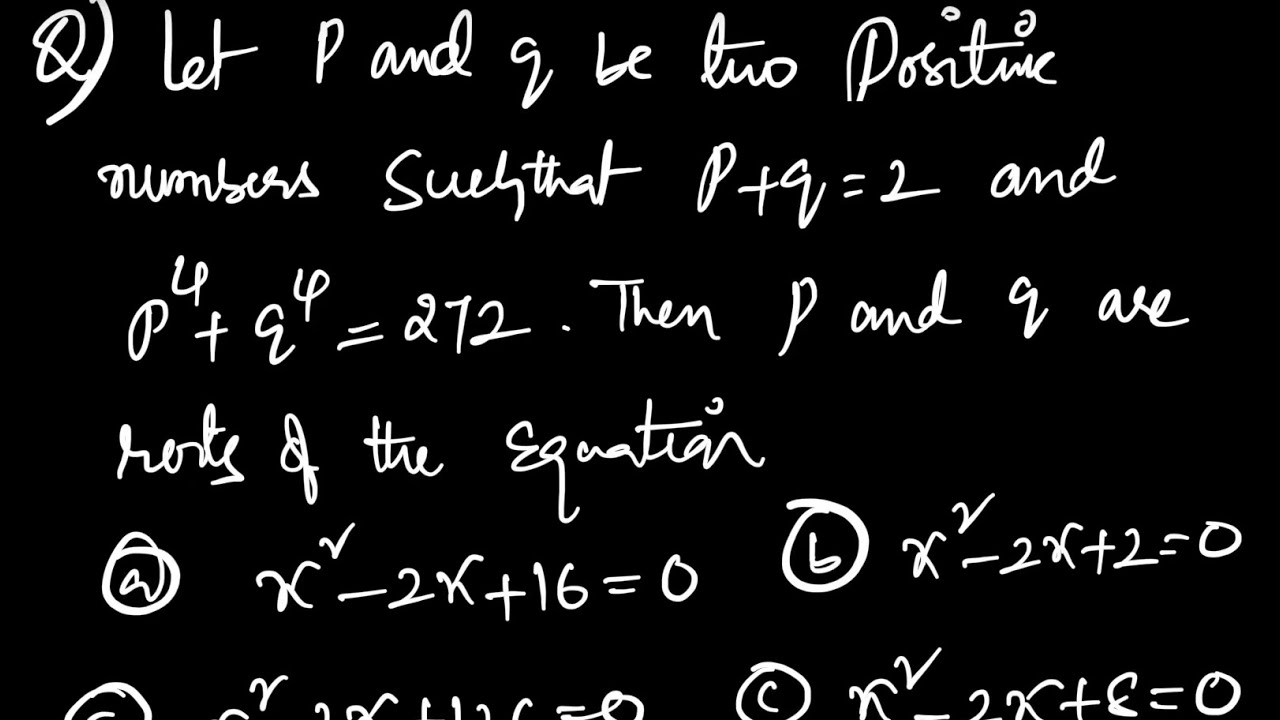 Q) Let P and q be two Positive
numbers Such that P+q=2 and
p⁴+q⁴=272. Then p and q are
roots of the Equation
(a) x²-2x+16=0 (b) x²-2x+2=0
(c) x²-2x+8=0